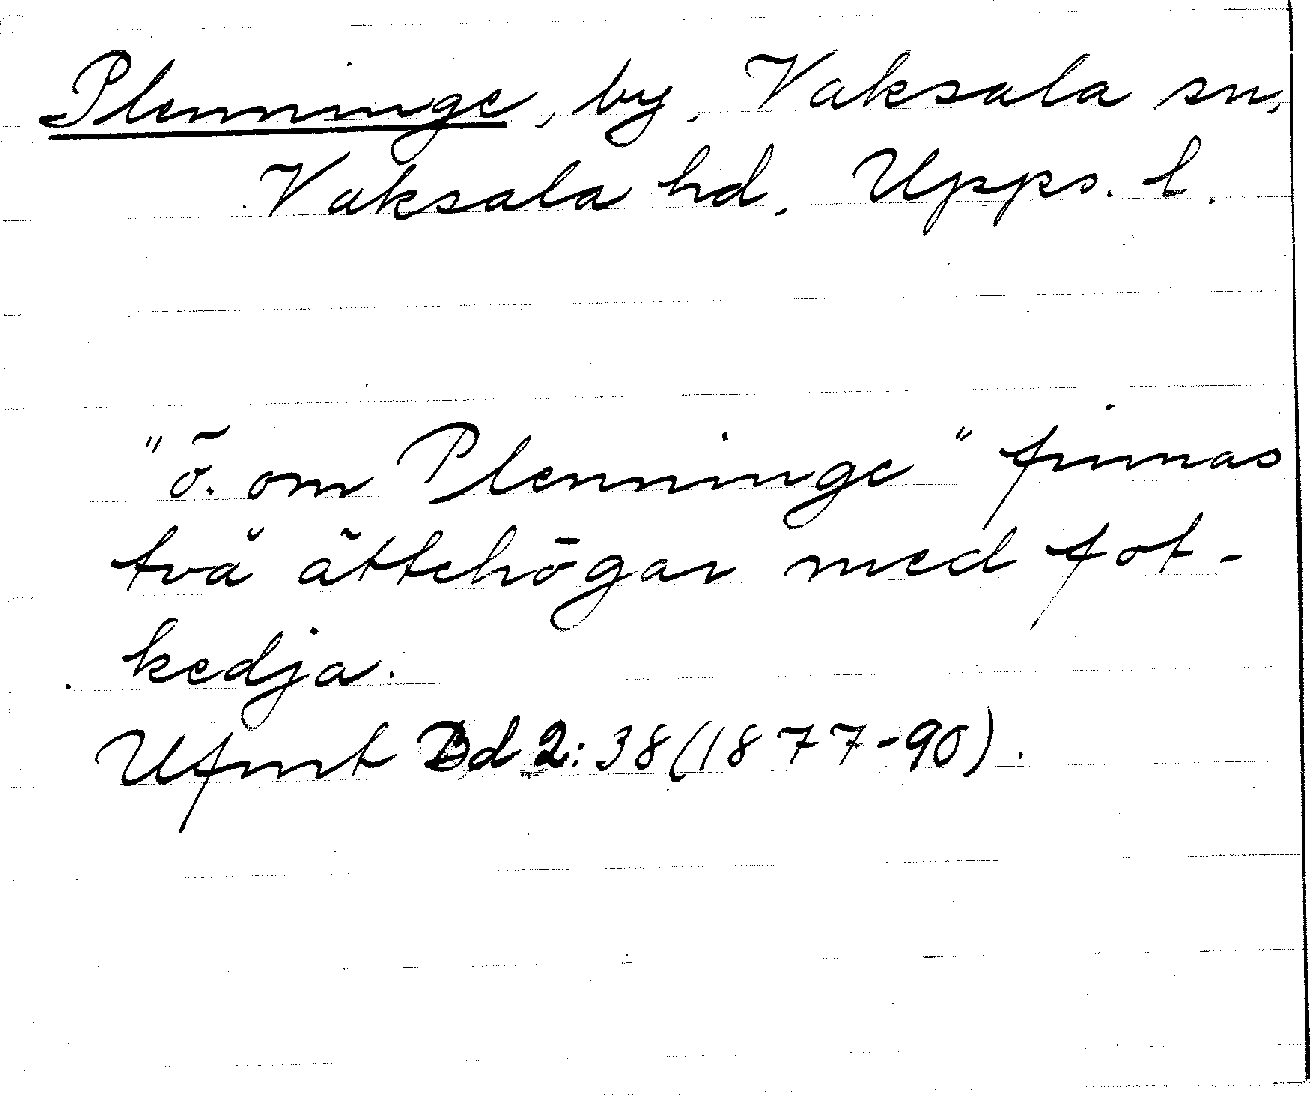 Plenninge, by, Vaksala sn,
Vaksala hd. Upps. l.
"ö. om Plenninge" finnas
två ättehögar med fot-
kedja.
Ufmt Bd 2: 38 (1877-90).